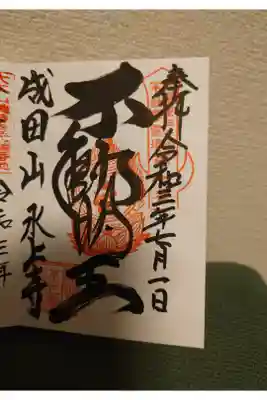 奉拝 令和三年七月一日
不動明王
成田山 水上寺
令和三年